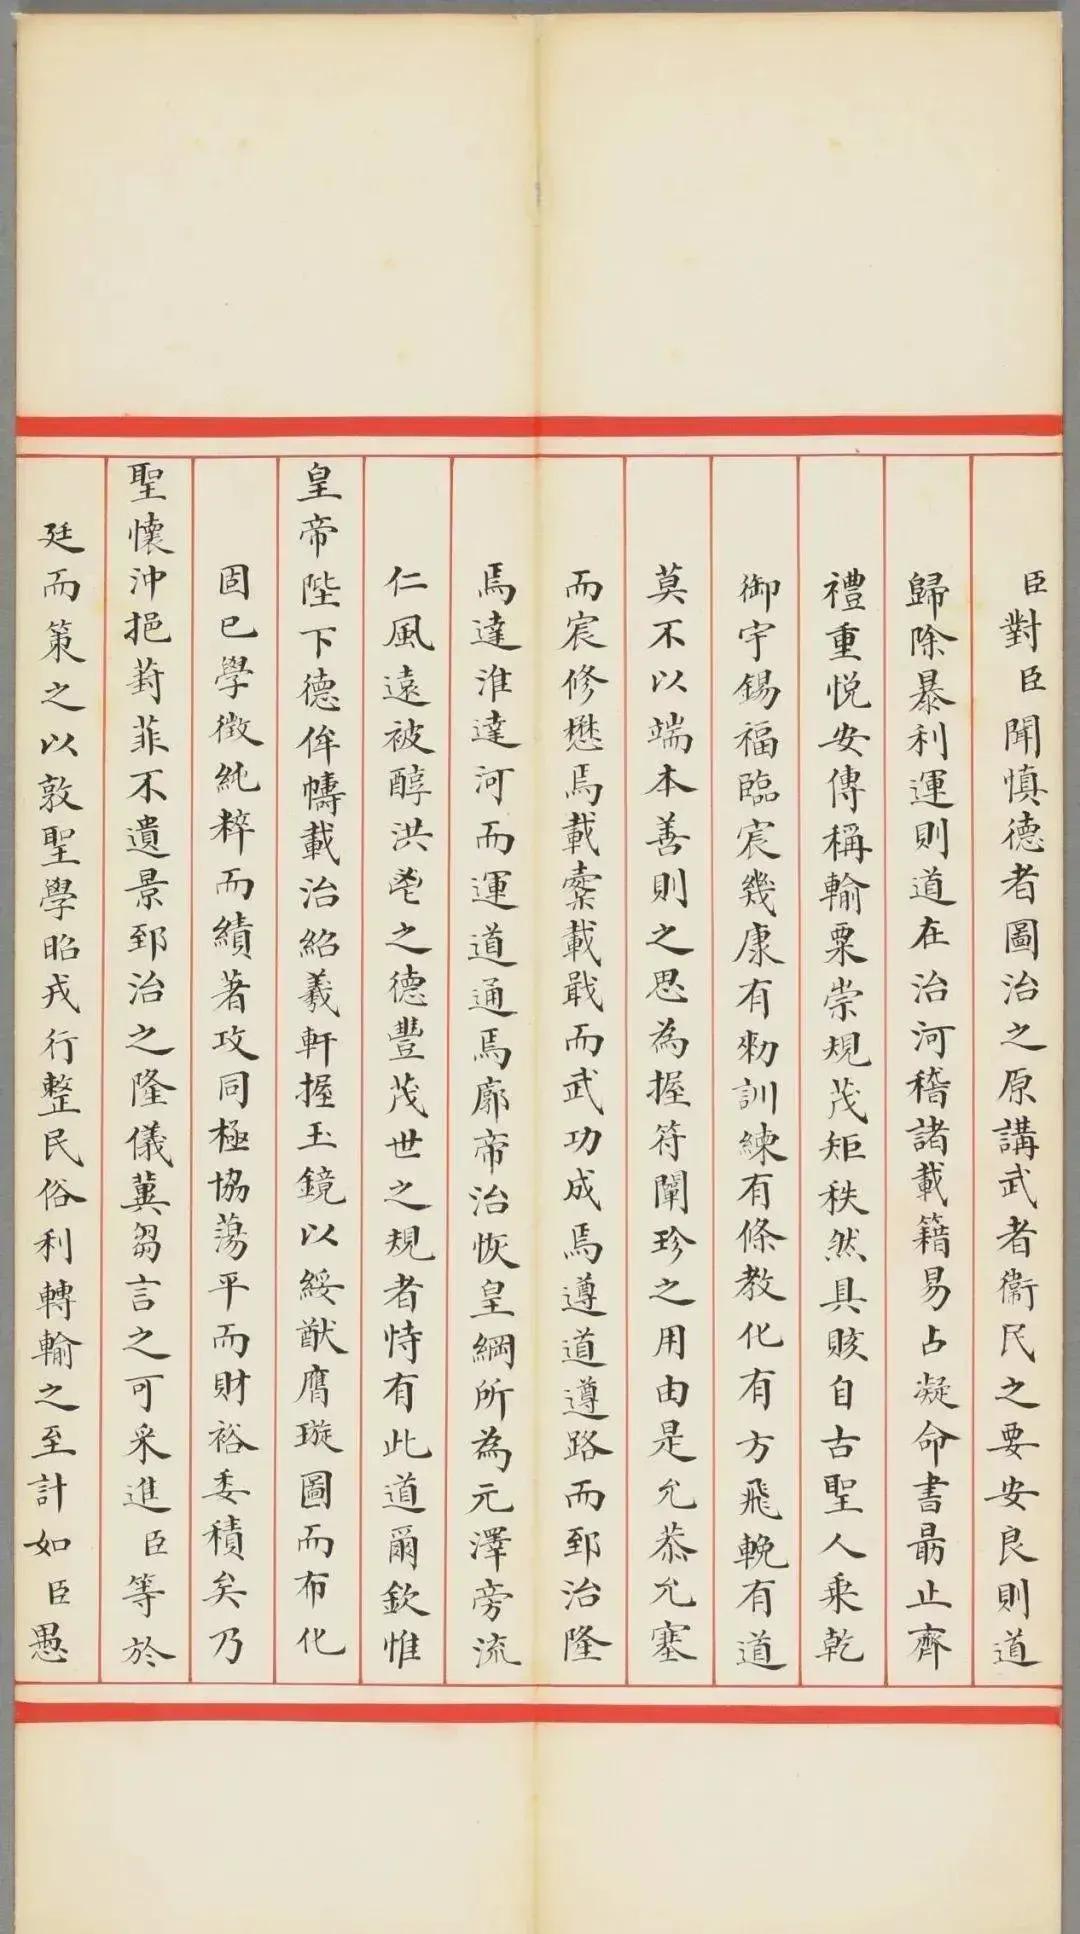 臣對臣聞慎德者圖治之原講武者衞民之要安良則道
歸除暴利運則道在治河稽諸載籍易占凝命書勗止齊
禮重悅安傳稱輸粟崇規茂矩秩然具賅自古聖人乘乾
御宇錫福臨宸幾康有勑訓練有條教化有方飛輓有道
莫不以端本善則之思為握符闡珍之用由是允恭允塞
而宸修懋焉載櫜載戢而武功成焉遵道遵路而郅治隆
焉達淮達河而運道通焉廓帝治恢皇綱所為元澤旁流
仁風遠被醇洪鬯之德豐茂世之規者恃有此道爾欽惟
皇帝陛下德侔幬載治紹羲軒握玉鏡以綏猷膺璇圖而布化
固已學徵純粹而績著攻同極協蕩平而財裕委積矣乃
聖懷沖挹葑菲不遺景郅治之隆儀冀芻言之可采進臣等於
廷而策之以敦聖學昭戎行整民俗利轉輸之至計如臣愚